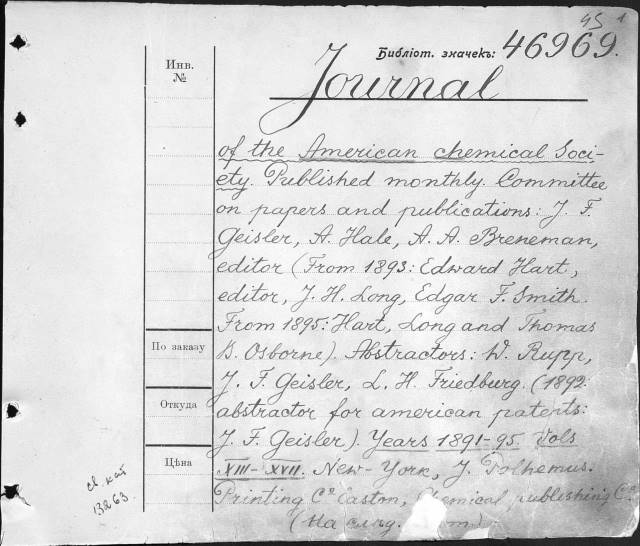 45 1
Библіот. значекъ: 46969.
Инв.
№
Journal
of the American chemical Soci-
ety. Published monthly. Committee
on papers and publications: J. F.
Geisler, A. Hale, A. A. Breneman,
editor (From 1893: Edward Hart,
editor, J. H. Long, Edgar F. Smith.
From 1895: Hart, Long and Thomas
B. Osborne). Abstractors: W. Rupp,
J. F. Geisler, L. H. Friedburg. (1892:
abstractor for american patents:
J. F. Geisler). Years 1891-95. Vols
XIII-XVII. New-York, J. Polhemus.
Printing Cº Easton, Chemical publishing Cº
(На слѣд.
По заказу
Откуда
Цѣна
св. кат
13263.